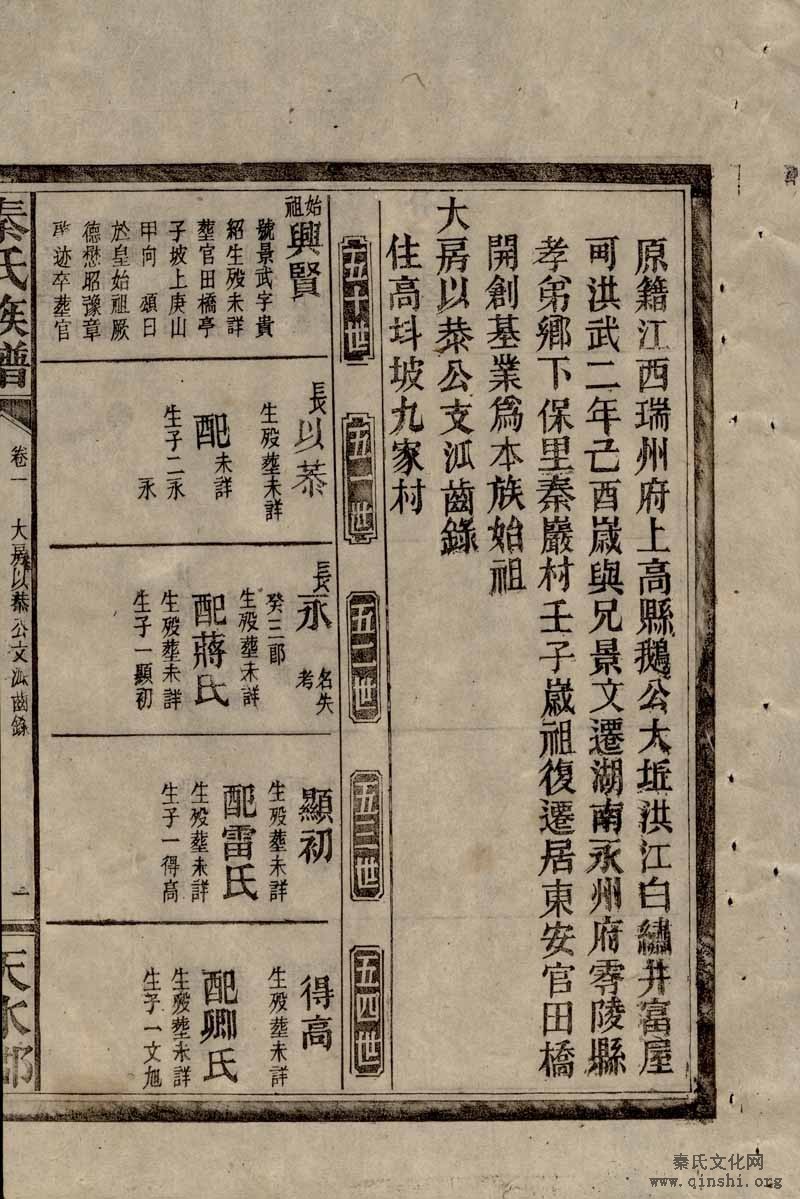 原籍江西瑞州府上高縣鵝公大坵洪江白繡井富屋
可洪武二年己酉歲與兄景文遷湖南永州府零陵縣
孝弟鄉下保里秦巖村壬子歲祖復遷居東安官田橋
開創基業爲本族始祖
大房以恭公支派齒錄
住高抖坡九家村
五十世
五一世
五二世
五三世
五四世
始祖興賢
號景武字貴
紹生殁未詳
葬官田橋亭
子坡上庚山
甲向 頌日
於皇始祖厥
德懋昭豫章
迹卒葬官
長以恭
生殁葬未詳
配未詳
生子二永
永
長永 名失考
癸三郎
生殁葬未詳
配蔣氏
生殁葬未詳
生子一顯初
顯初
生殁葬未詳
配雷氏
生殁葬未詳
生子一得高
得高
生殁葬未詳
配卿氏
生殁葬未詳
生子一文旭
秦氏族譜
卷一 大房以恭公支派齒錄
一
天水郡
秦氏文化网
www.qinshi.org